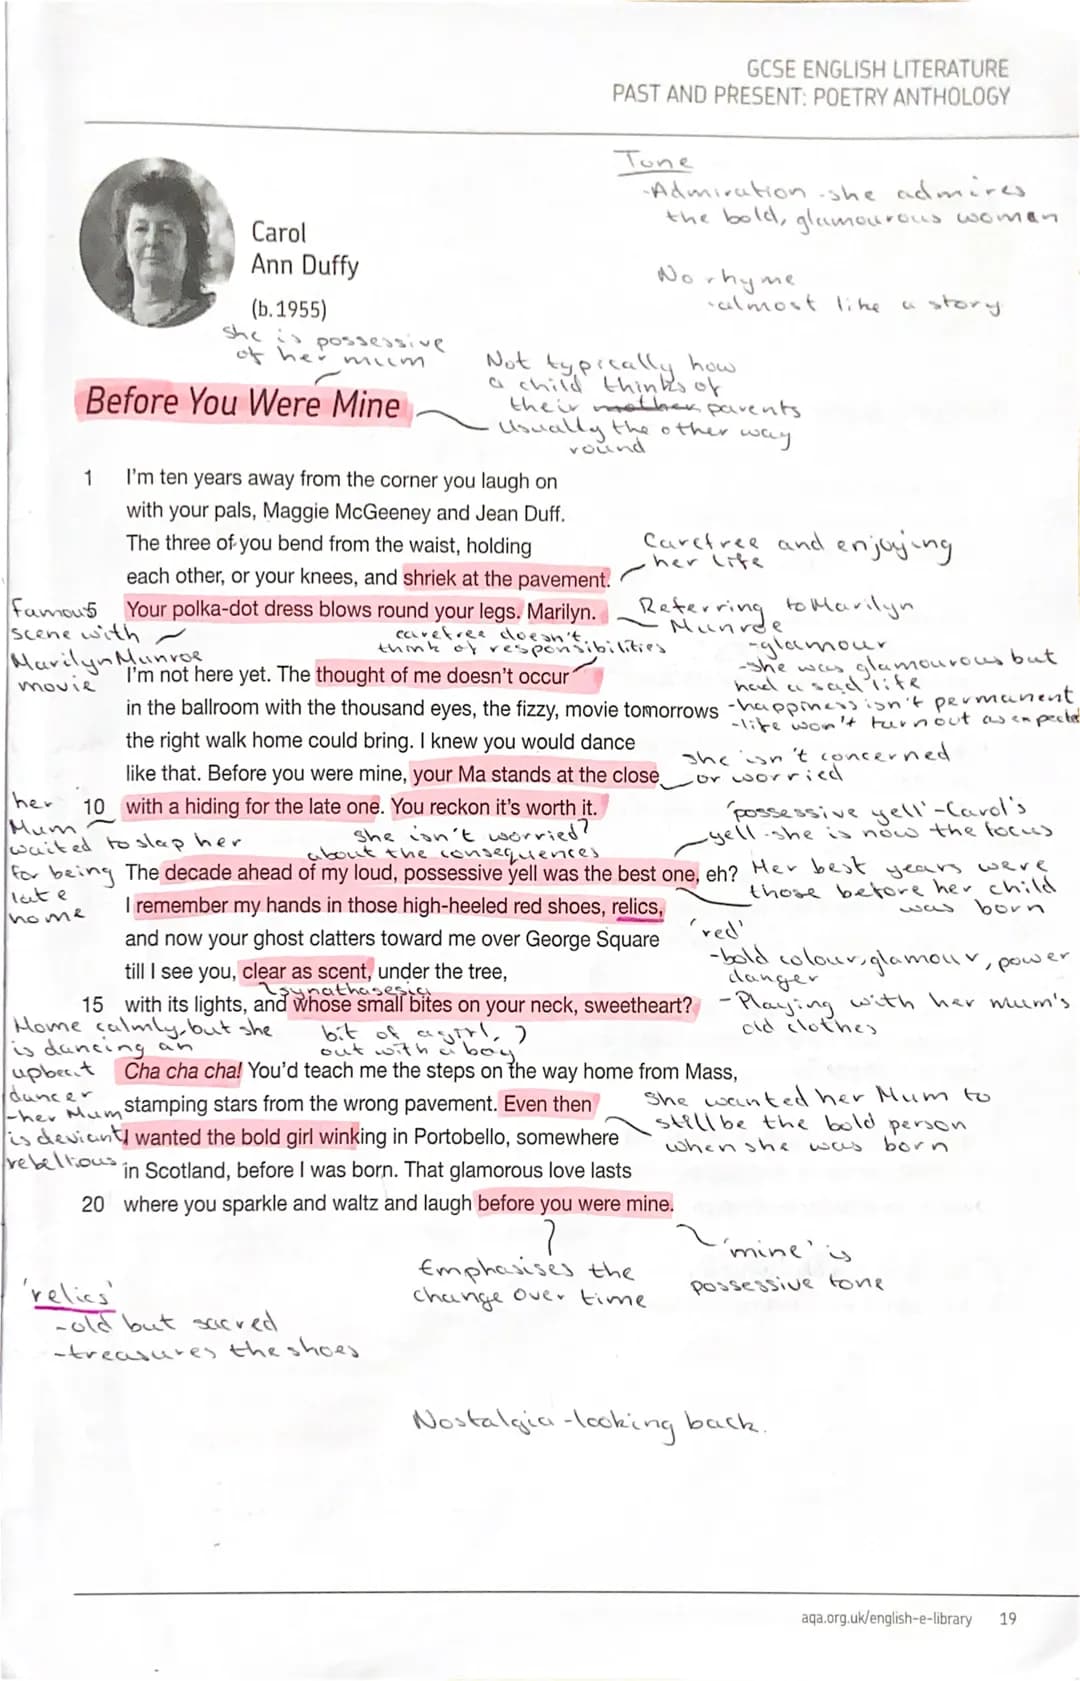 GCSE ENGLISH LITERATURE
PAST AND PRESENT: POETRY ANTHOLOGY
Tone
-Admiration -she admires
the bold, glamourous woman
Carol
Ann Duffy
(b.1955)
No rhyme
-almost like a story
she is possessive
of her mum
Not typically how
a child thinks of
their mother parents
Usually the other way
round
Before You Were Mine
1 I'm ten years away from the corner you laugh on
with your pals, Maggie McGeeney and Jean Duff.
The three of you bend from the waist, holding
each other, or your knees, and shriek at the pavement.
Carefree and enjoying
her life
Your polka-dot dress blows round your legs. Marilyn.
Famous
scene with
Marilyn Munroe
movie
Referring to Marilyn
Munroe
-glamour
-she was glamourous but
had a sad life
-happiness isn't permanent
-life won't turn out as expected
carefree doesn't
think of responsibilities
I'm not here yet. The thought of me doesn't occur
in the ballroom with the thousand eyes, the fizzy, movie tomorrows
the right walk home could bring. I knew you would dance
like that. Before you were mine, your Ma stands at the close
she isn't concerned
or worried
10 with a hiding for the late one. You reckon it's worth it.
her
Mum
waited to slap her
for being
late
home
She isn't worried
about the consequences
'possessive yell'-Carol's
yell -she is now the focus
The decade ahead of my loud, possessive yell was the best one, eh?
Her best years were
those before her child
was born
I remember my hands in those high-heeled red shoes, relics,
and now your ghost clatters toward me over George Square
till I see you, clear as scent, under the tree,
synathasesia
'red'
-bold colour, glamour, power
danger
-Playing with her mum's
old clothes
15 with its lights, and whose small bites on your neck, sweetheart?
bit of a girl,
out with a boy
Home calmly, but she
is dancing an
upbeat
dancer
-her Mum
is deviant/
rebellious
Cha cha cha! You'd teach me the steps on the way home from Mass,
stamping stars from the wrong pavement. Even then
I wanted the bold girl winking in Portobello, somewhere
in Scotland, before I was born. That glamorous love lasts
20 where you sparkle and waltz and laugh before you were mine.
She wanted her Mum to
still be the bold person
when she was born
Emphasises the
change over time
'mine' is
possessive tone
'relics'
-old but sacred
-treasures the shoes
Nostalgia -looking back.
aqa.org.uk/english-e-library 19